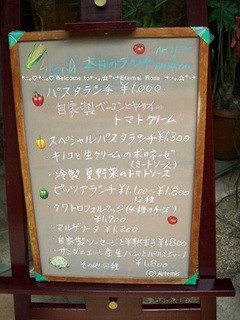 本日のランチ
*:.｡☆*:.｡*Welcome to*:.｡☆*:.*Eternal Rose *:.｡☆*:.｡*
パスタランチ ¥1,000
自家製ベーコンとヤサイの
トマトクリーム
スペシャルパスタランチ ¥1,300
・キノコと生クリームのボロネーゼ
(ミートソース)
・冷製 夏野菜のトマトソース
ピッツァランチ ¥1,100~¥1,800
12種
・クワトロフォルマッジ(4種のチーズ)
¥1,700
・マルゲリータ ¥1,200
・自家製ソーセージと半熟玉子 ¥1,800
・サンダニエーレ産生ハムと
その他 ¥1,800
(C) Artemis